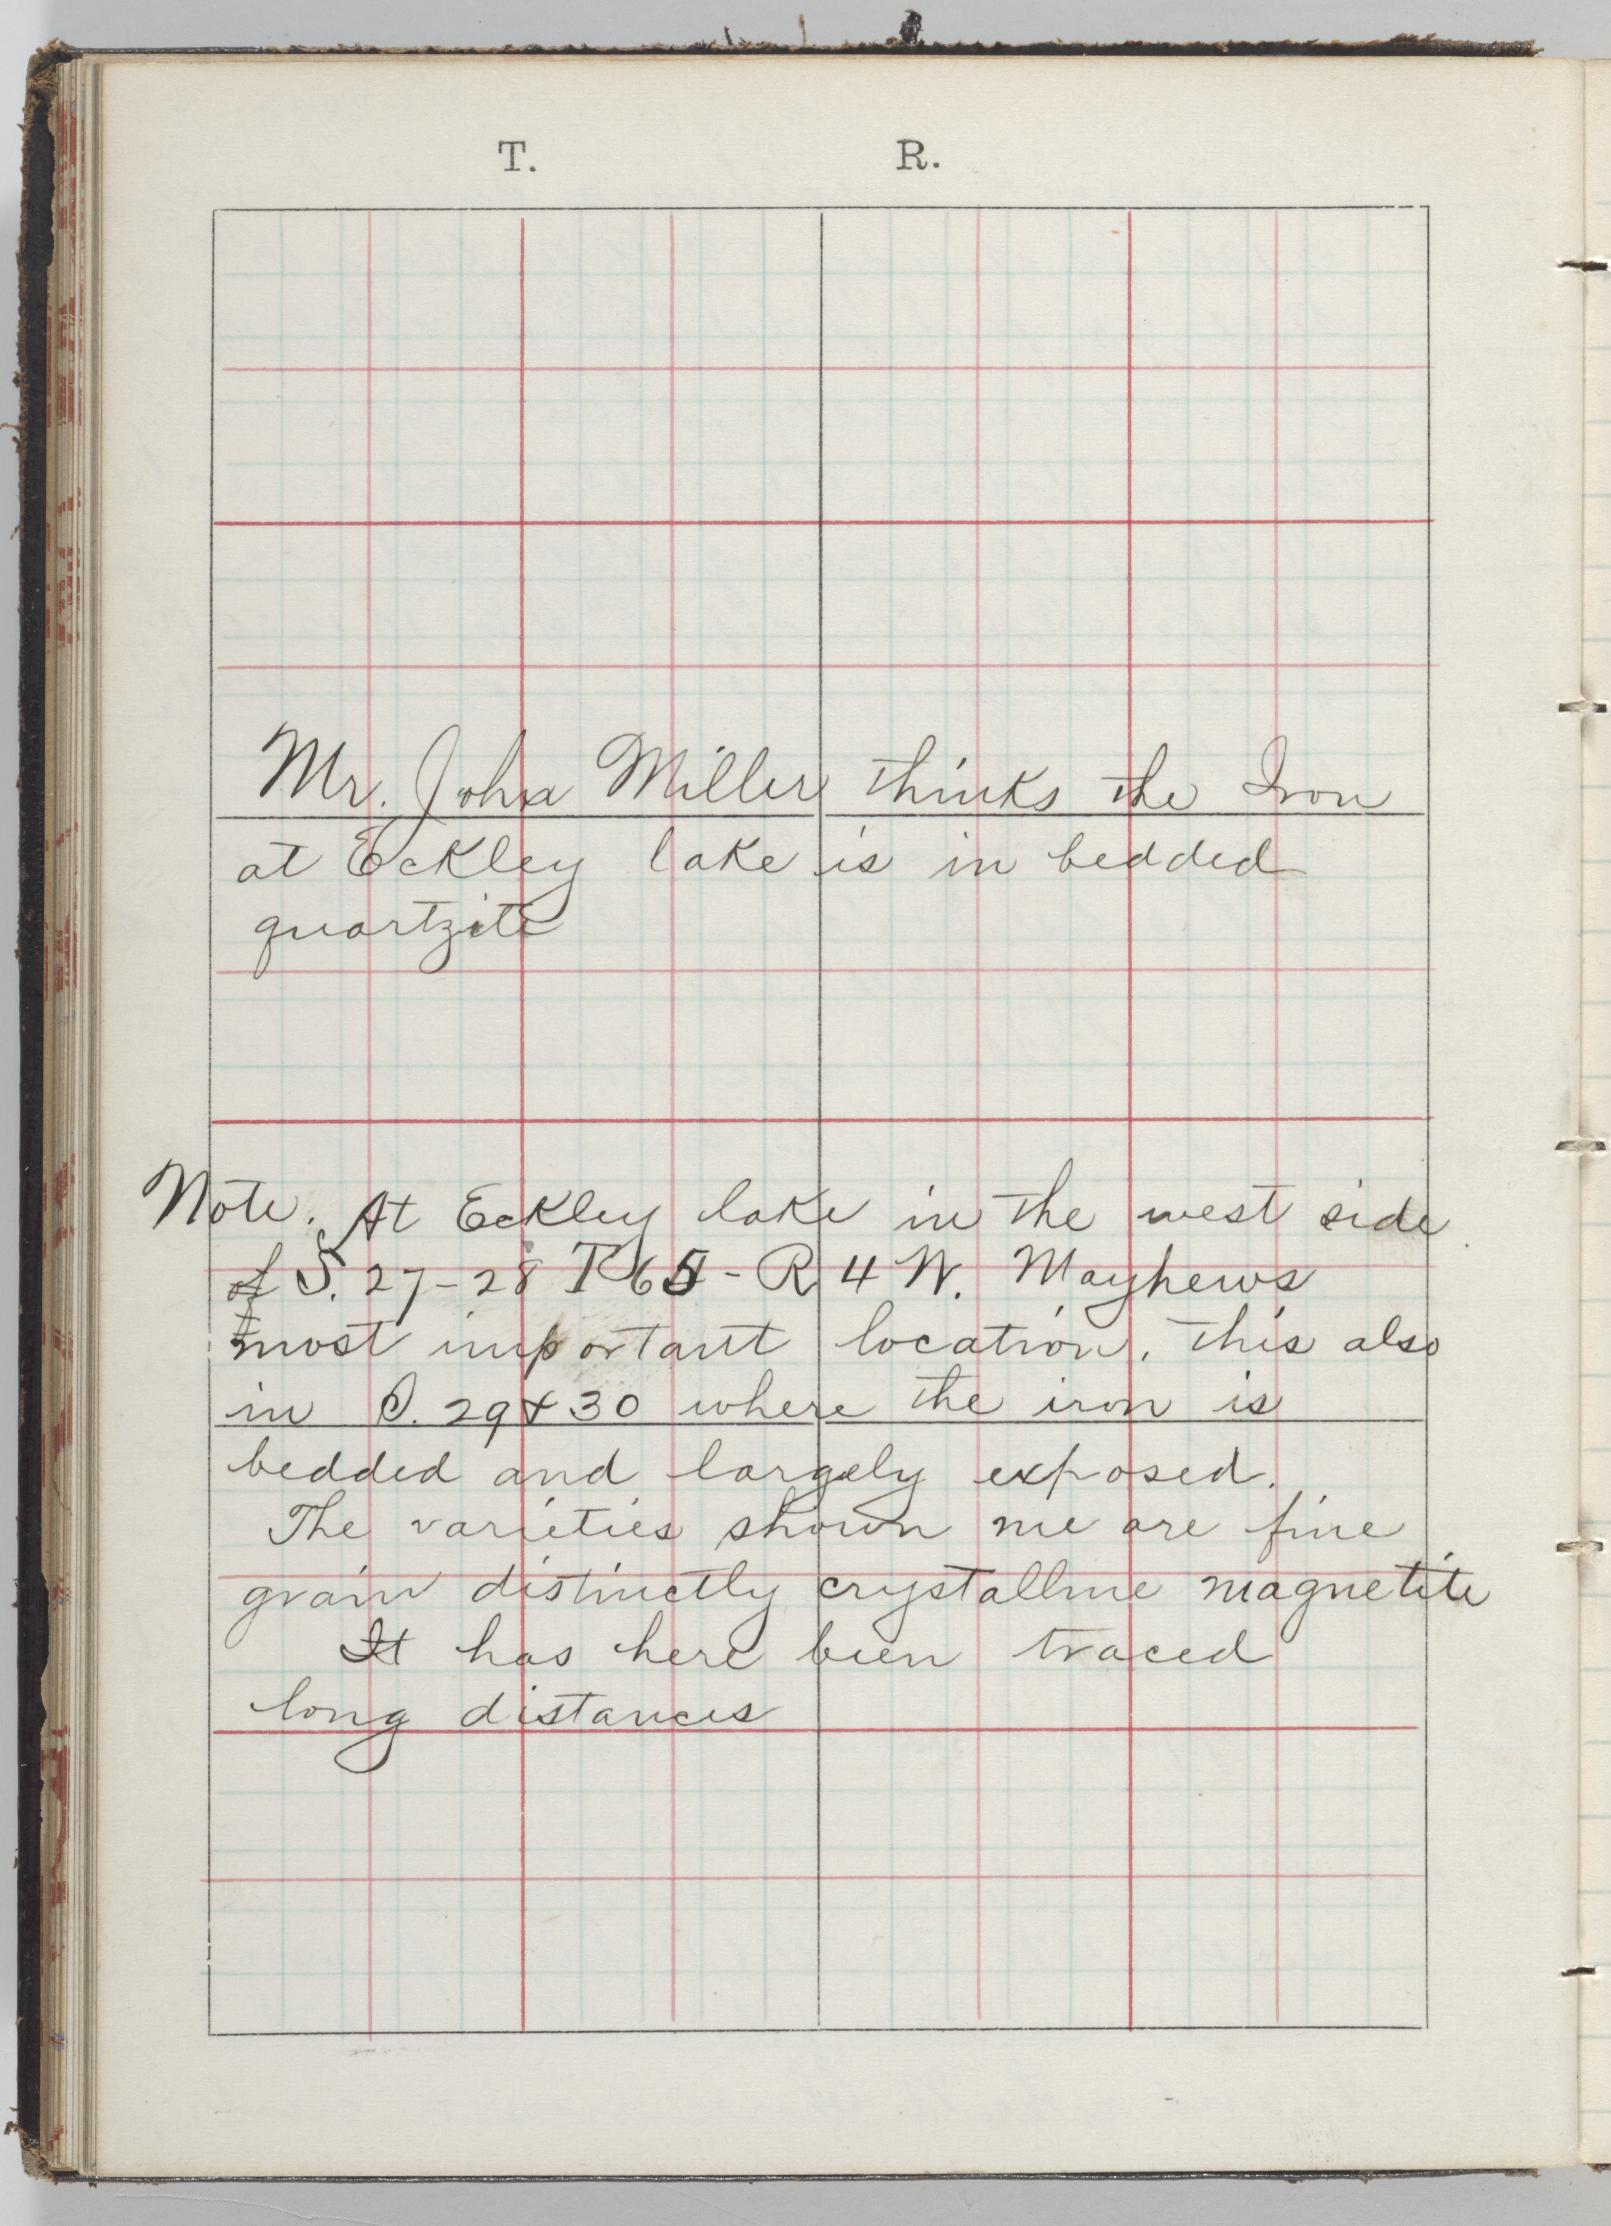 T. R.
Mr. John Miller thinks the Iron
at Eckley lake is in bedded
quartzite
Note. At Eckley lake in the west side
of S. 27-28 T 65 - R 4 W. Mayhews
most important location. This also
in S. 29 & 30 where the iron is
bedded and largely exposed.
The varieties shown me are fine
grain distinctly crystalline magnetite
It has here been traced
long distances